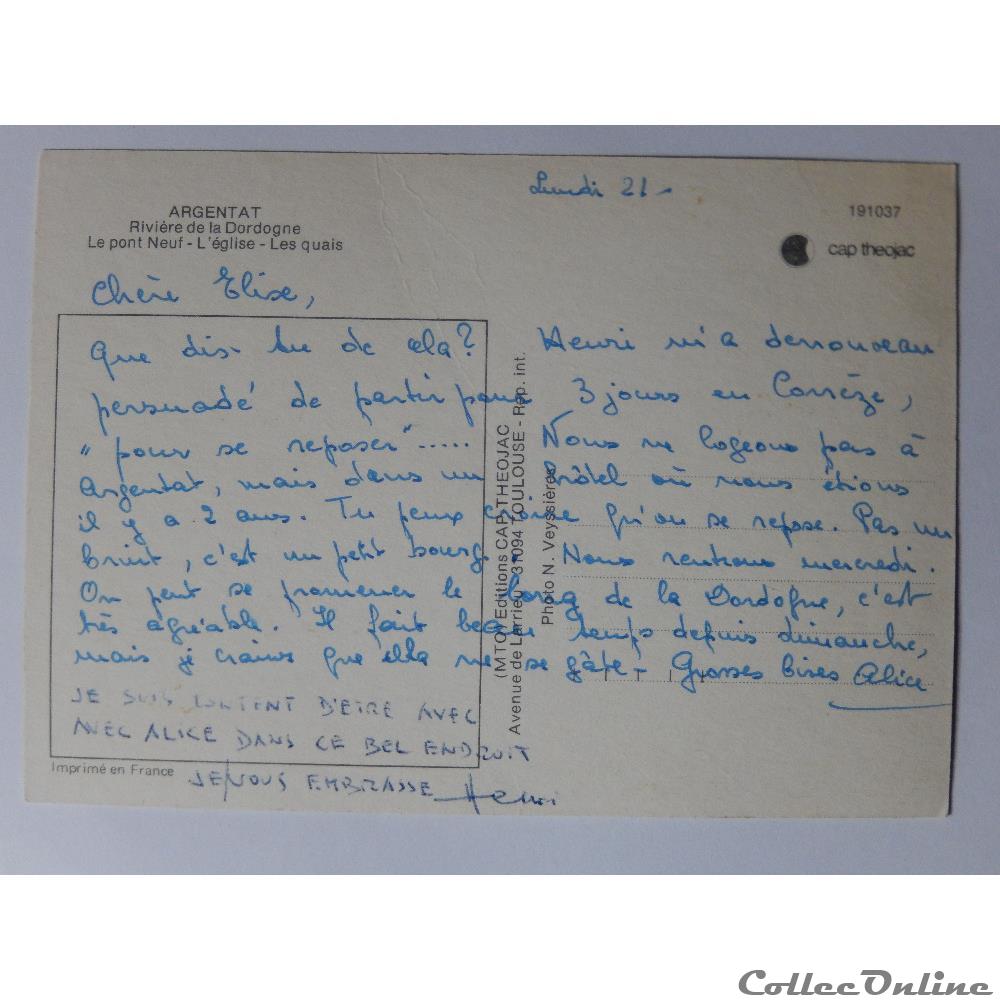 Lundi 21 -
ARGENTAT
Rivière de la Dordogne
Le pont Neuf - L'église - Les quais
191037
cap theojac
Chère Elise,
Que dis-tu de cela? Henri m'a derrouveau
persuadé de partir pour 3 jours en Corrèze,
"pour se reposer"..... Nous ne logeons pas à
Argentat, mais dans un hôtel où nous étions
il y a 2 ans. Tu peux croire qu'on se repose. Pas un
bruit, c'est un petit bourg. Nous rentrons mercredi.
On peut se promener le long de la Dordogne, c'est
très agréable. Il fait beau temps depuis dimanche,
mais j' crains que ella ne se gâte - Grosses bises Alice
JE SUIS CONTENT D'ETRE AVEC
AVEC ALICE DANS CE BEL ENDROIT
JE VOUS EMBRASSE Henri
Imprimé en France
(MTO) Editions CAP-THEOJAC
Avenue de Larrieu - 31094 TOULOUSE - Rep. int.
Photo N. Veyssières
CollecOnline